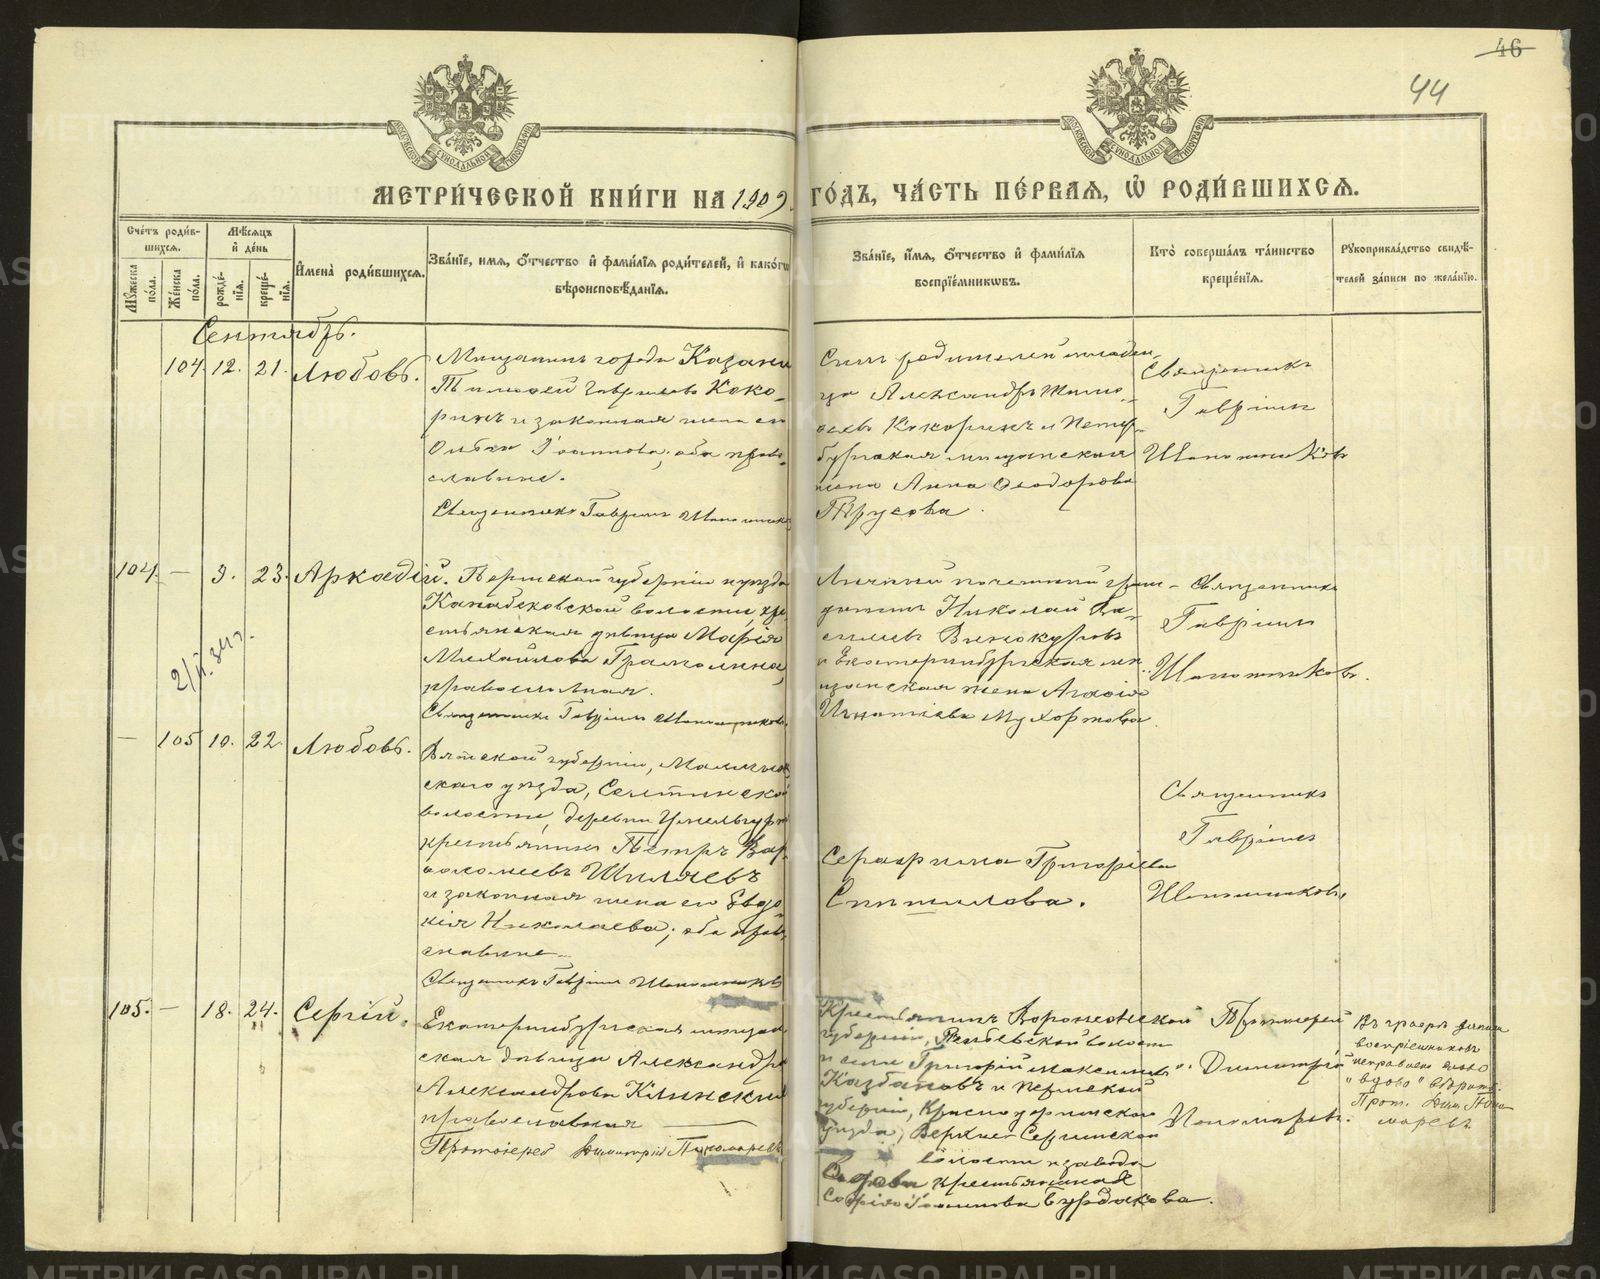 46
44
МЕТРИ́ЧЕСКОЙ КНИ́ГИ НА 1909 ГО́ДЪ, ЧА́СТЬ ПЕ́РВАЯ, Ѡ҆ РОДИ́ВШИХСЯ.
Сче́тъ роди́в-
шихся.
Мѣ́сяцъ
и҆ де́нь
Мꙋ́жеска по́ла.
Же́нска по́ла.
рожде́-
нїя.
креще́-
нїя.
И҆мена̀ роди́вшихся.
Зва́нїе, и҆мя, ѻ҆́тчество и҆ фами́лїя роди́телей, и҆ како́гѡ
вѣроисповѣ́данїя.
Зва́нїе, и҆́мя, ѻ҆́тчество и҆ фами́лїя
воспрїе́мникѡвъ.
Кто̀ соверша́лъ та́инство
креще́нїя.
Рꙋкоприкла́дство свидѣ́-
телей за́писи по жела́нїю.
Сентябрь.
104. 12. 21. Любовь.
Мѣщанинъ города Казани
Тимофей Гавриловъ Коко-
ринъ и законная жена его
Ольга Іоаннова; оба право-
славные.
Священникъ Гавріилъ
Сынъ родителей младен-
ца Александръ Тимо-
ѳеевъ Кокоринъ и Петер-
бургская мѣщанская
жена Анна Ѳеодорова
Трусова.
Священникъ
Гавріилъ
104. — 9. 23. Аркадій.
Пермской губерніи и уѣзда
волости, кре-
стьянская дѣвица Марія
Михайлова Грамолина,
православная.
Священникъ Гавріилъ
Личный почетный граж-
данинъ Николай Ва-
сильевъ Винокуровъ
и Екатеринбургская мѣ-
щанская жена Агафія
Игнатіева Мухортова.
Священникъ
Гавріилъ
— 105 10. 22. Любовь.
Вятской губерніи, Малмыж-
скаго уѣзда, Селтинской
волости, деревни
крестьянинъ Петръ Вар-
ѳоломеевъ Шиляевъ
и законная жена его Евдо-
кія Николаева; оба право-
славные.
Священникъ Гавріилъ
Серафима Григоріева
Священникъ
Гавріилъ
105. — 18. 24. Сергій.
Екатеринбургская мѣщан-
ская дѣвица Александра
Александрова Клинских
православная
Протоіерей Димитрій Пономаревъ
Крестьянинъ Воронежской
губерніи, волости
и села Григорій Максимовъ
Казбановъ и Пермской
губерніи, Красноуфимскаго
уѣзда, Верхне-Сергинской
волости и завода
вдова крестьянская
Софія Іоаннова Бурдакова.
Протоіерей
Димитрій
Пономаревъ.
Въ графѣ записи
воспріемниковъ
исправлено слово
"вдова" вѣрить.
Прот. Дим. Поно-
маревъ